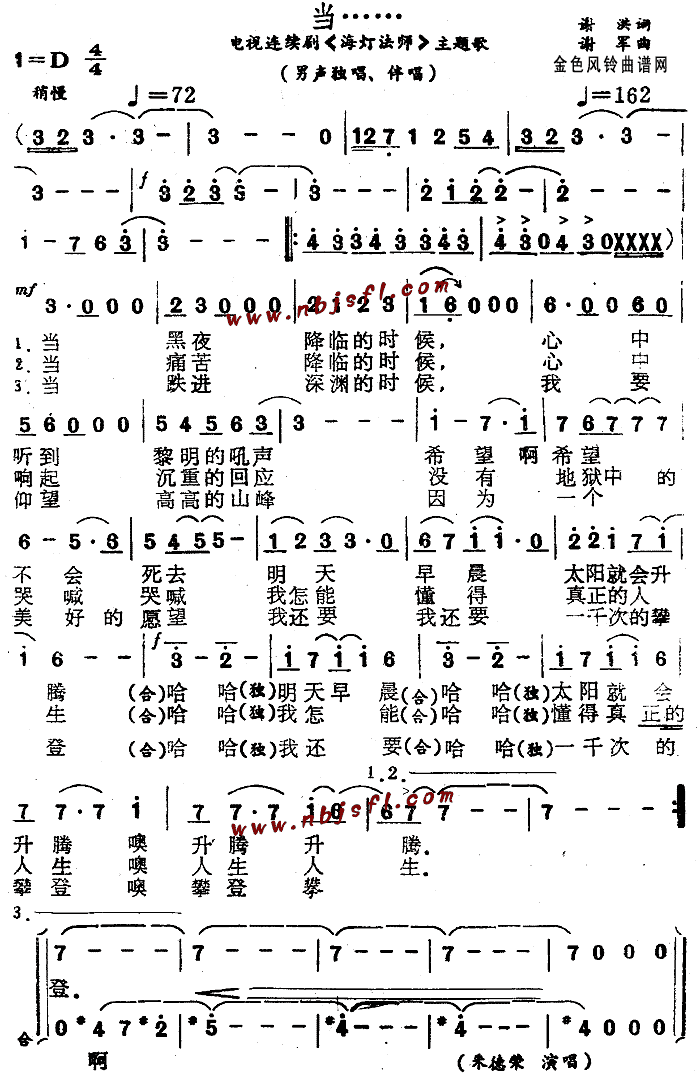 当……
电视连续剧《海灯法师》主题歌
(男声独唱、伴唱)
谢 洪词
谢 军曲
金色风铃曲谱网
1=D 4/4
稍慢 ♩=72 ♩=162
(3 2 3 · 3 - | 3 - - 0 | 1 2 7 1 2 5 4 | 3 2 3 · 3 -
3 - - - | f 3 2 3 3 - | 3 - - - | 2 1 2 2 - | 2 - - -
1 - 7 6 3 | 3 - - - ‖: 4 3 3 4 3 3 4 3 | 4 3 0 4 3 0 X X X X )
www.nbjsfl.com
mf 3 · 0 0 0 | 2 3 0 0 0 | 2 1 2 3 | 1 6 0 0 0 | 6 · 0 0 6 0
1.当 黑夜 降临的时 候, 心 中
2.当 痛苦 降临的时 候, 心 中
3.当 跌进 深渊的时 候, 我 要
5 6 0 0 0 | 5 4 5 6 3 | 3 - - - | 1 - 7 · 1 | 7 6 7 7 7
听到 黎明的吼声 希望 啊希望
响起 沉重的回应 没有 地狱中的
仰望 高高的山峰 因为 一个
6 - 5 · 6 | 5 4 5 5 - | 1 2 3 3 · 0 | 6 7 1 1 · 0 | 2 2 1 7 1
不 会 死去 明 天 早 晨 太阳就会升
哭 喊 哭喊 我怎能 懂 得 真正的人
美 好的愿望 我还要 我还要 一千次的攀
1 6 - - | f 3 - 2 - | 1 7 1 1 6 | 3 - 2 - | 1 7 1 1 6
腾 (合)哈 哈(独)明天早 晨(合)哈 哈(独)太阳就 会
生 (合)哈 哈(独)我怎 能(合)哈 哈(独)懂得真 正的
登 (合)哈 哈(独)我还 要(合)哈 哈(独)一千次 的
1.2.
7 7 · 7 1 | 7 7 · 7 1 6 | 6 7 7 - - | 7 - - - :‖
www.nbjsfl.com
升 腾 噢 升 腾 升 腾.
人 生 噢 人 生 人 生.
攀 登 噢 攀 登 攀
3.
7 - - - | 7 - - - | 7 - - - | 7 - - - | 7 0 0 0
登.
合 0 #4 7 #2 | #5 - - - | #4 - - - | #4 - - - | #4 0 0 0
啊
(朱德荣 演唱)